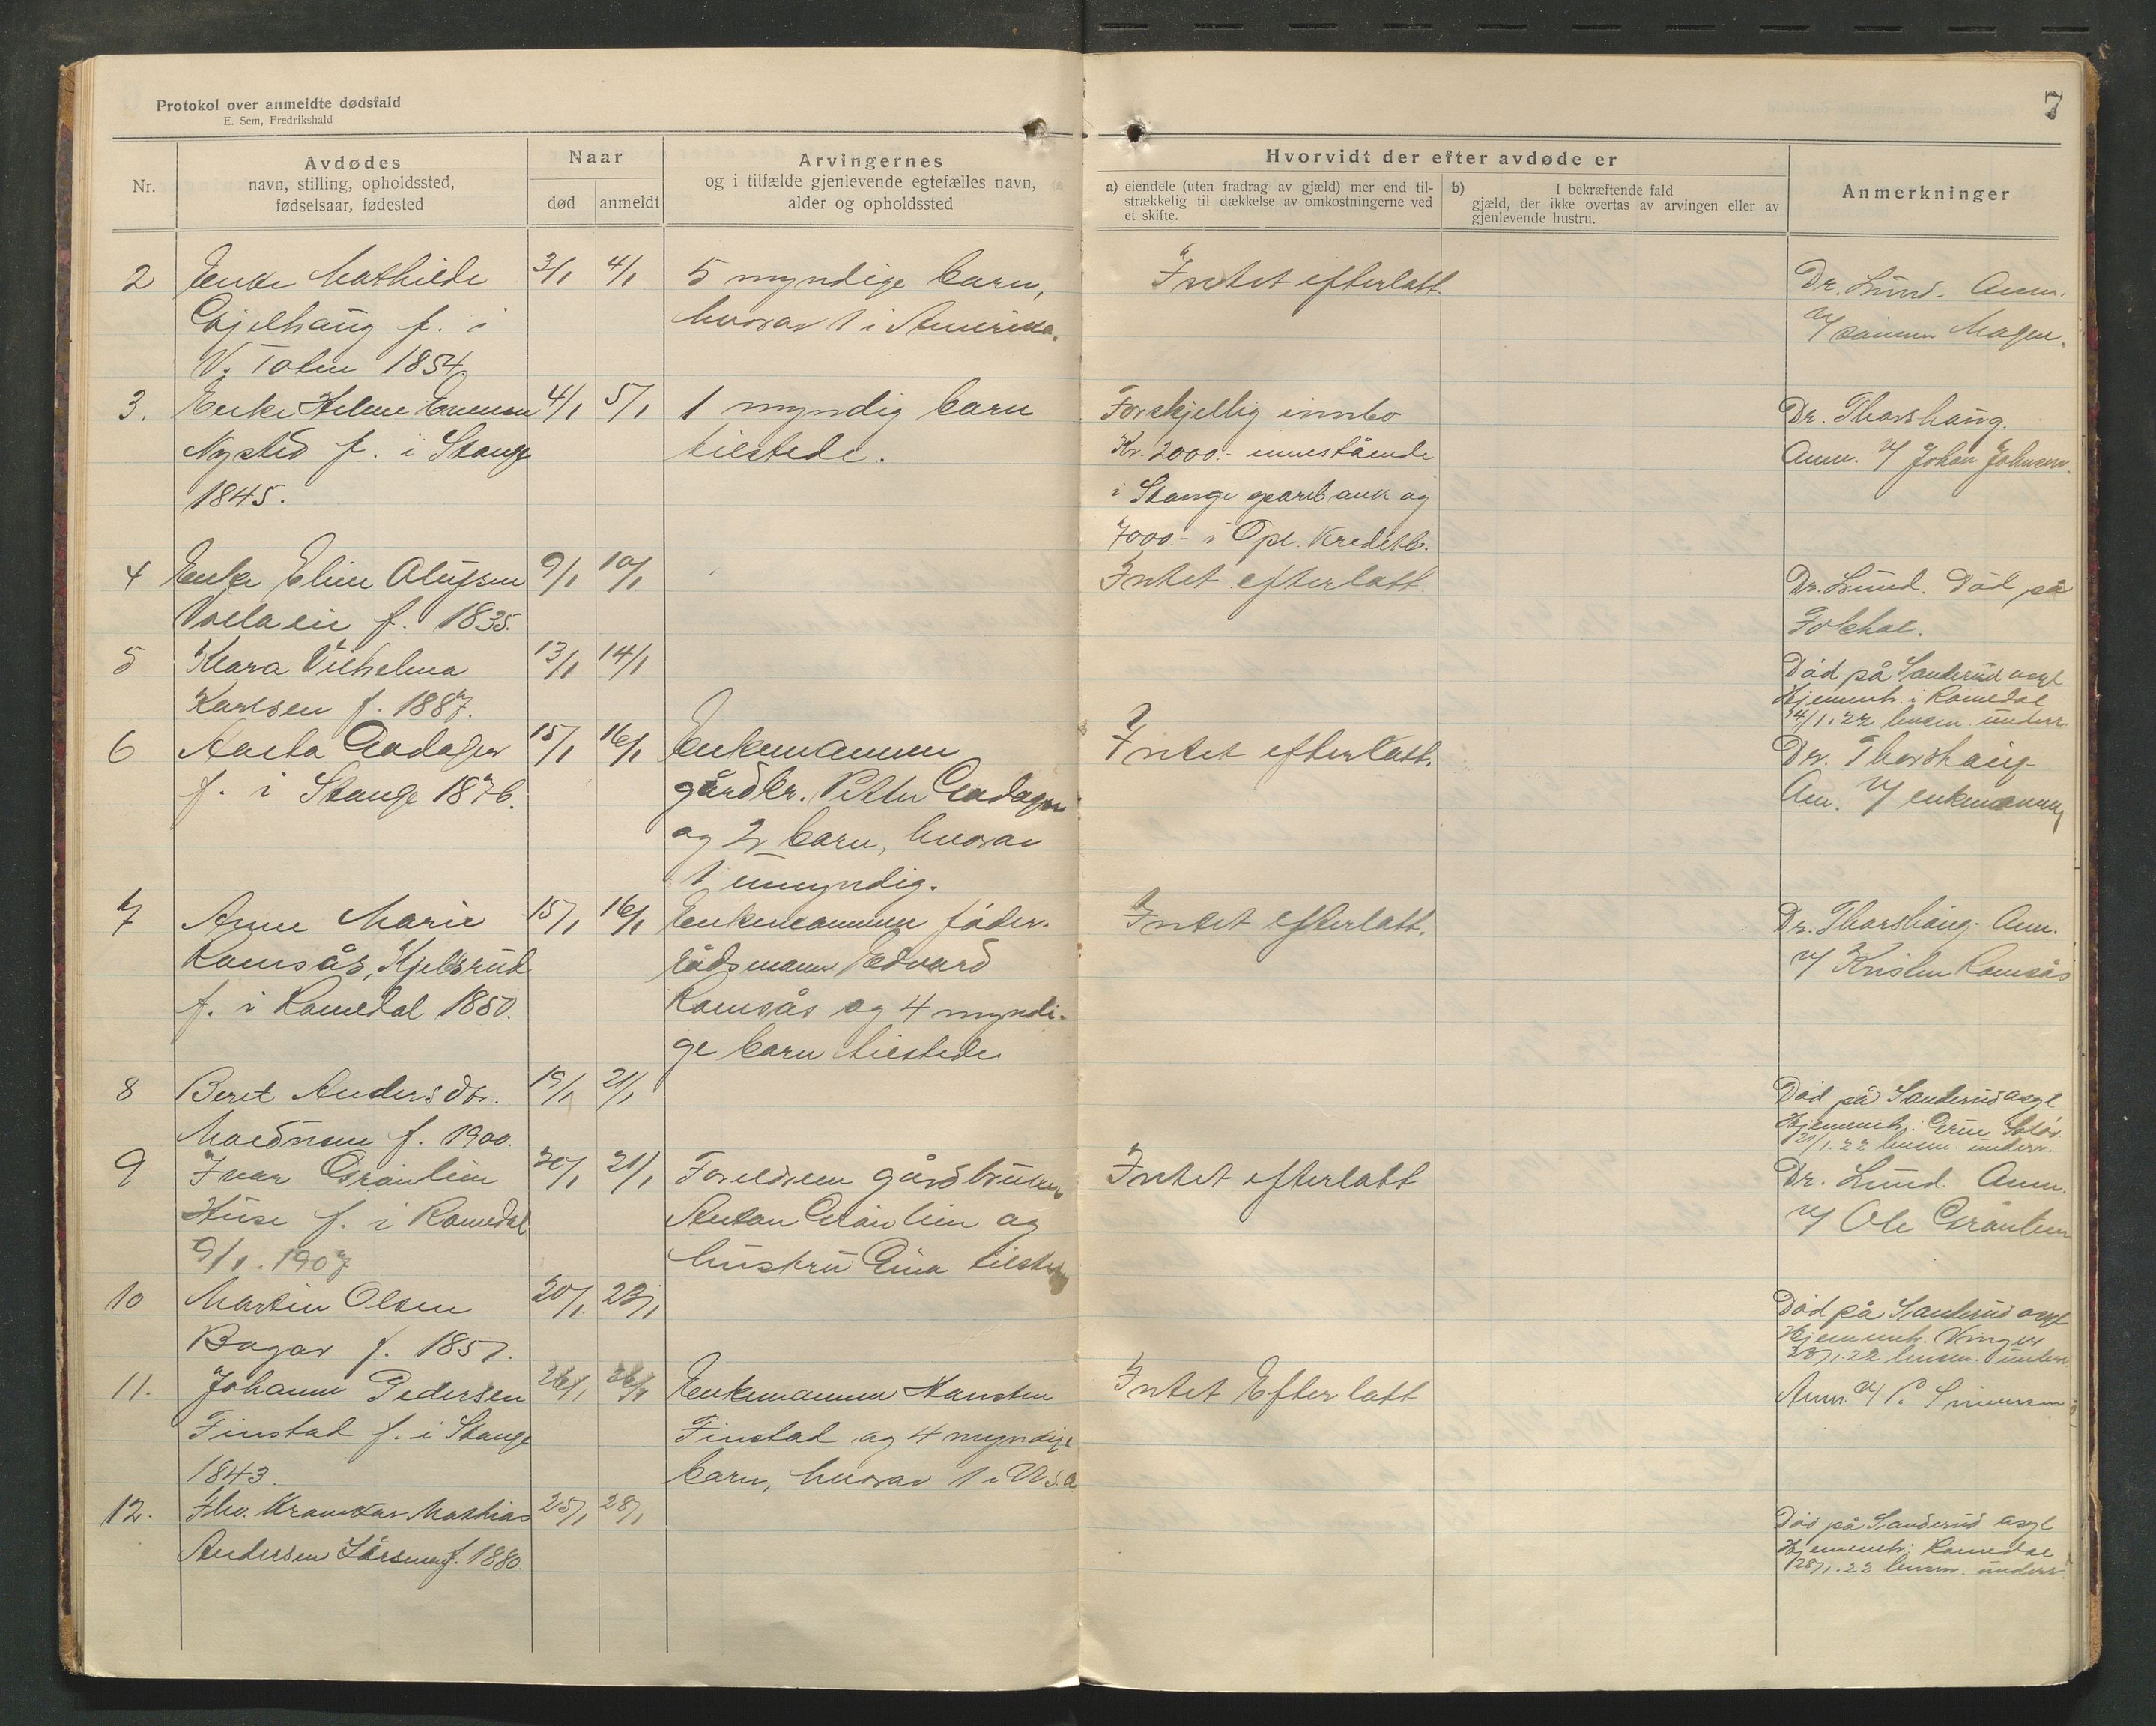 Protokol over anmeldte dødsfald
E. Sem, Fredrikshald
7
Nr.
Avdødes
navn, stilling, opholdssted,
fødselsaar, fødested
Naar
død
anmeldt
Arvingernes
og i tilfælde gjenlevende egtefælles navn,
alder og opholdssted
Hvorvidt der efter avdøde er
a) eiendele (uten fradrag av gjæld) mer end til-
strækkelig til dækkelse av omkostningerne ved
et skifte.
b) I bekræftende fald
gjæld, der ikke overtas av arvingen eller av
gjenlevende hustru.
Anmerkninger
2 Enke Mathilde 3/1 4/1 5 myndige barn, Intet efterlatt Dr. Lund. Anm.
f. i hvorav 1 i Amerika. v/ sønnen Magn.
V. Toten 1854
3. Enke Helene Evensen 4/1 5/1 1 myndig barn Forskjellig innbo Dr. Thorshaug.
Nysted f. i Stange tilstede. Kr. 2000.- innestående Anm. v/ Johan Johnsen.
1845. i Stange sparebank og
7000.- i Opl. Kreditb.
4 Enke Eline Olufsen 9/1 10/1 Intet efterlatt. Dr. Lund. Død på
f. 1835.
5 Klara Vilhelma 13/1 14/1 Død på Sanderud asyl
Karlsen f. 1887. Hjemmeh. i Romedal
14/1.22 lensm. underr.
6 Aasta 15/1 16/1 Enkemannen Intet efterlatt. Dr. Thorshaug
f. i Stange 1876. gårdbr. Petter Anm. v/ enkemannen
og 2 barn, hvorav
1 umyndig.
7 Anne Marie 15/1 16/1 Enkemannen føder- Intet efterlatt. Dr. Thorshaug. Anm.
Ramsås, Kjelsrud rådsmann Edvard v/ Kristen Ramsås
f. i Romedal 1850. Ramsås og 4 myndi-
ge barn tilstede
8 Beret Andersdtr. 19/1 21/1 Død på Sanderud asyl
f. 1900. Hjemmeh. i Grue Solør
21/1.22 lensm. underr.
9 Ivar Grønlien 20/1 21/1 Foreldrene gårdbruker Intet efterlatt Dr. Lund. Anm.
Huse f. i Romedal Anton Grønlien og v/ Ole Grønlien
9/1.1907 hustru Gina tilstede
10 Martin Olsen 20/1 23/1 Død på Sanderud asyl
f. 1857. Hjemmeh. Vinger
23/1.22 lensm. underr.
11. Johanne Pedersen 26/1 26/1 Enkemannen Intet Efterlatt Anm. v/ P. Simensen
Finstad f. i Stange Finstad og 4 myndige
1843. barn, hvorav 1 i U.S.A
12. Mathias 25/1 28/1 Død på Sanderud asyl
Andersen f. 1880. Hjemmeh. i Romedal
28/1.22 lensm. underr.